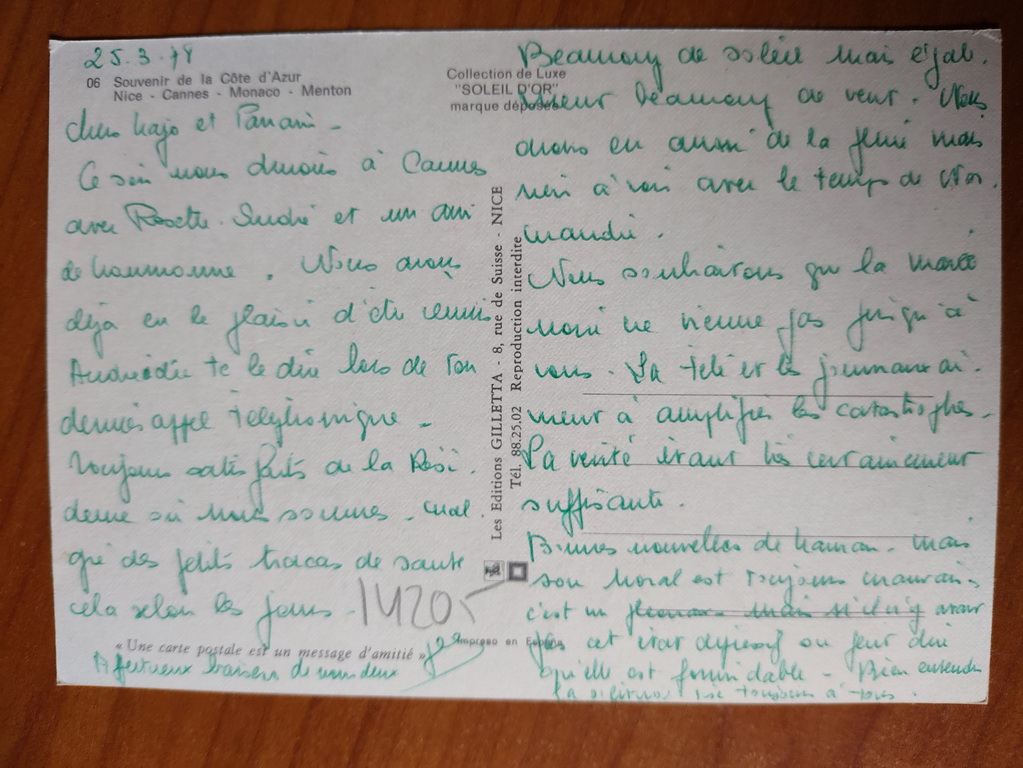 25.3.78
06 Souvenir de la Côte d'Azur
Nice - Cannes - Monaco - Menton
Collection de Luxe
"SOLEIL D'OR"
marque déposée
et
Ce soir nous dinons à Cannes
avec Rosette. André et un ami
de . Nous avons
déjà eu le plaisir d'être réunis
te le dire lors de ton
dernier appel téléphonique -
Toujours satisfaits de la Rési.
dence où nous sommes - mal.
gré des petits tracas de santé
cela selon les jours -
1420,-
« Une carte postale est un message d'amitié »
Impreso en España
Affectueux baisers de nous deux
Les Editions GILLETTA - 8, rue de Suisse - NICE
Tél. 88.25.02 Reproduction interdite
Beaucoup de soleil mais égal.
lement beaucoup de vent. Nous
avons eu aussi de la pluie mais
rien à voir avec le temps de Nor.
mandie.
Nous souhaitons que la marée
noire ne vienne pas jusqu'à
vous. La télé et les journaux ai.
ment à amplifier les catastrophes.
La vérité étant très certainement
suffisante.
Bonnes nouvelles de maman. Mais
son moral est toujours mauvais,
c'est un mais s'il n'y avait
pas cet état dépressif on peut dire
qu'elle est formidable - Bien entendu
la toujours à tous.